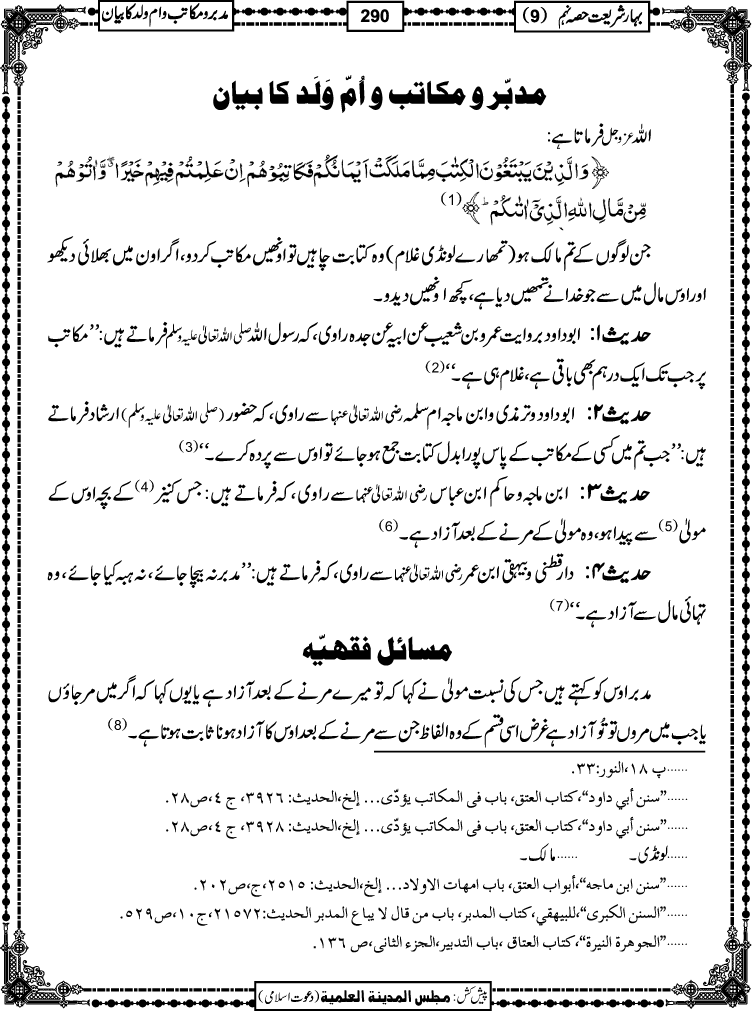 بہار شریعت حصہ نہم (9)
290
مدبر و مکاتب و ام ولد کا بیان
مدبّر و مکاتب و اُمّ وَلَد کا بیان
اللہ عزوجل فرماتا ہے:
﴿ وَالَّذِیْنَ یَبْتَغُوْنَ الْكِتٰبَ مِمَّا مَلَكَتْ اَیْمَانُكُمْ فَكَاتِبُوْهُمْ اِنْ عَلِمْتُمْ فِیْهِمْ خَیْرًا ۖۗ وَّاٰتُوْهُمْ
مِّنْ مَّالِ اللّٰهِ الَّذِیْۤ اٰتٰىكُمْ ؕ ﴾ (1)
جن لوگوں کے تم مالک ہو (تمھارے لونڈی غلام) وہ کتابت چاہیں تو اونھیں مکاتب کردو، اگر اون میں بھلائی دیکھو
اور اوس مال میں سے جو خدا نے تمھیں دیا ہے، کچھ اونھیں دیدو۔
حدیث ۱: ابوداود بروایت عمرو بن شعیب عن ابیہ عن جدہ راوی، کہ رسول اللہ صلی اللہ تعالیٰ علیہ وسلم فرماتے ہیں: ’’مکاتب
پر جب تک ایک درہم بھی باقی ہے، غلام ہی ہے۔‘‘ (2)
حدیث ۲: ابوداود و ترمذی و ابن ماجہ ام سلمہ رضی اللہ تعالیٰ عنہا سے راوی، کہ حضور (صلی اللہ تعالیٰ علیہ وسلم) ارشاد فرماتے
ہیں: ’’جب تم میں کسی کے مکاتب کے پاس پورا بدل کتابت جمع ہو جائے تو اوس سے پردہ کرے۔‘‘ (3)
حدیث ۳: ابن ماجہ و حاکم ابن عباس رضی اللہ تعالیٰ عنہما سے راوی، کہ فرماتے ہیں: جس کنیز (4) کے بچہ اوس کے
مولیٰ (5) سے پیدا ہو، وہ مولیٰ کے مرنے کے بعد آزاد ہے۔ (6)
حدیث ۴: دارقطنی و بیہقی ابن عمر رضی اللہ تعالیٰ عنہما سے راوی، کہ فرماتے ہیں: ’’مدبر نہ بیچا جائے، نہ ہبہ کیا جائے، وہ
تہائی مال سے آزاد ہے۔‘‘ (7)
مسائل فقهیّه
مدبر اوس کو کہتے ہیں جس کی نسبت مولیٰ نے کہا کہ تو میرے مرنے کے بعد آزاد ہے یا یوں کہا کہ اگر میں مرجاؤں
یا جب میں مروں تو تُو آزاد ہے غرض اسی قسم کے وہ الفاظ جن سے مرنے کے بعد اوس کا آزاد ہونا ثابت ہوتا ہے۔ (8)
......پ ۱۸،النور:۳۳.
......”سنن أبي داود“،کتاب العتق، باب فی المکاتب یؤدّی... إلخ،الحدیث: ۳۹۲۶، ج ٤،ص۲۸.
......”سنن أبي داود“،کتاب العتق، باب فی المکاتب یؤدّی... إلخ،الحدیث: ۳۹۲۸، ج ٤،ص۲۸.
......لونڈی۔ ......مالک۔
......”سنن ابن ماجه“،أبواب العتق، باب امهات الاولاد... إلخ،الحدیث: ۲۵۱۵،ج،ص۲۰۲.
......”السنن الکبری“،للبیهقي،کتاب المدبر، باب من قال لا یباع المدبر الحدیث:۲۱۵۷۲،ج۱۰،ص۵۲۹.
......”الجوهرة النیرة“،کتاب العتاق ،باب التدبیر،الجزء الثانی،ص ۱۳٦.
پیش کش: مجلس المدینة العلمیة (دعوت اسلامی)